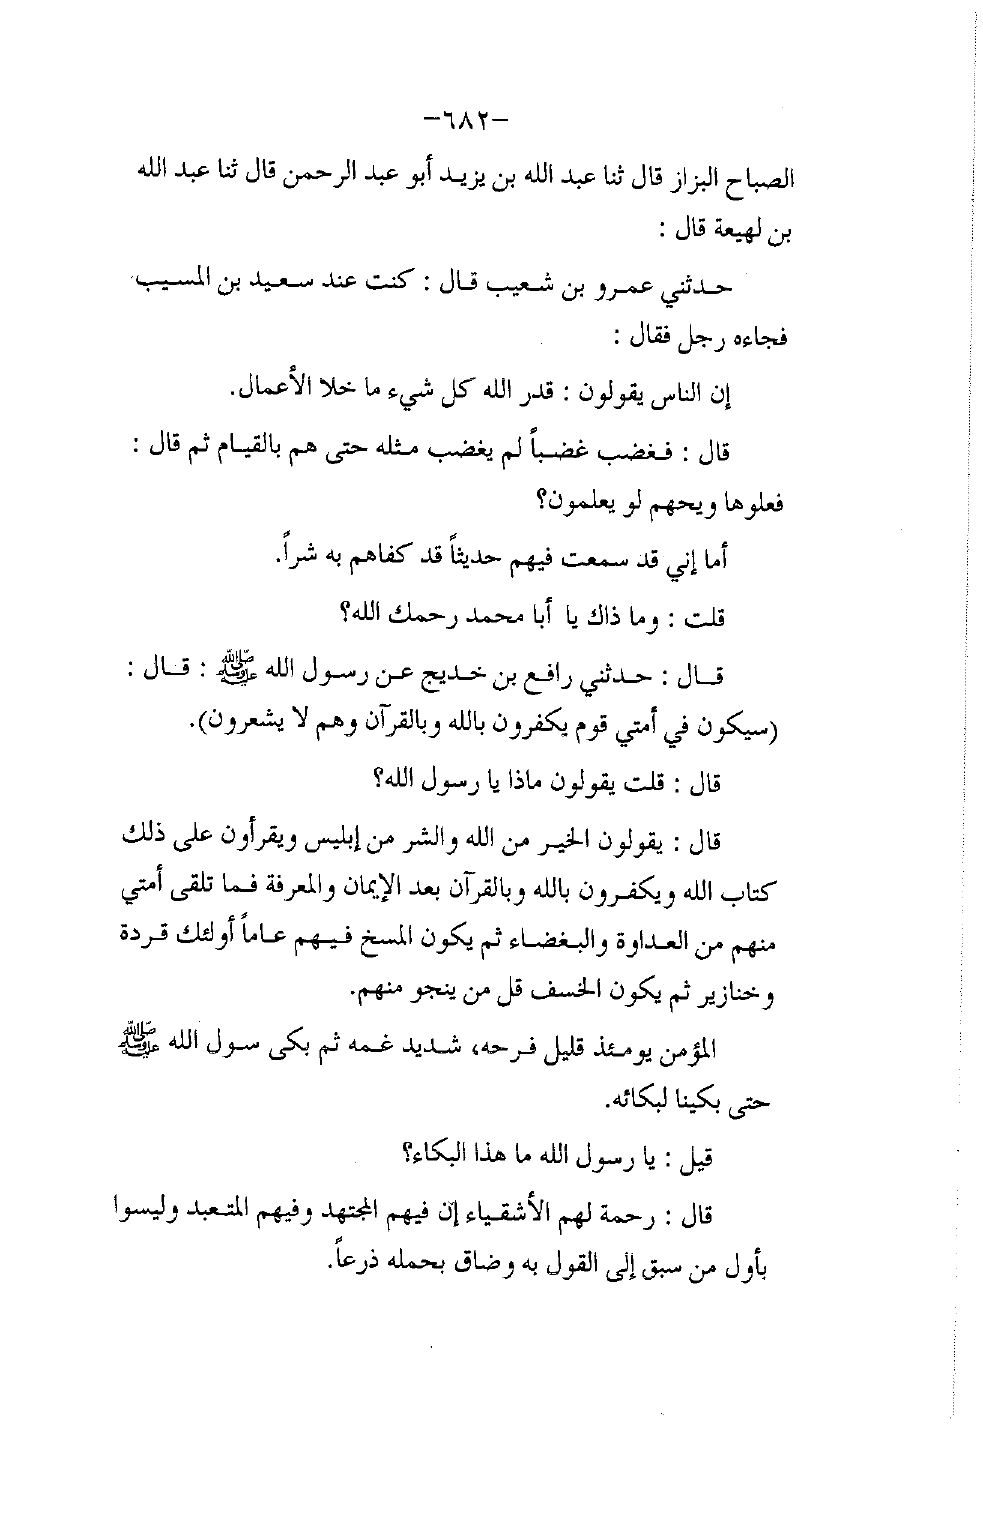 -٦٨٢-
الصباح البزاز قال ثنا عبد الله بن يزيد أبو عبد الرحمن قال ثنا عبد الله
بن لهيعة قال :
حدثني عمرو بن شعيب قال : كنت عند سعيد بن المسيب
فجاءه رجل فقال :
إن الناس يقولون : قدر الله كل شيء ما خلا الأعمال.
قال : فغضب غضباً لم يغضب مثله حتى هم بالقيام ثم قال :
فعلوها ويحهم لو يعلمون؟
أما إني قد سمعت فيهم حديثاً قد كفاهم به شراً.
قلت : وما ذاك يا أبا محمد رحمك الله؟
قال : حدثني رافع بن خديج عن رسول الله ﷺ : قال :
(سيكون في أمتي قوم يكفرون بالله وبالقرآن وهم لا يشعرون).
قال : قلت يقولون ماذا يا رسول الله؟
قال : يقولون الخير من الله والشر من إبليس ويقرأون على ذلك
كتاب الله ويكفرون بالله وبالقرآن بعد الإيمان والمعرفة فما تلقى أمتي
منهم من العداوة والبغضاء ثم يكون المسخ فيهم عاماً أولئك قردة
وخنازير ثم يكون الخسف قل من ينجو منهم.
المؤمن يومئذ قليل فرحه، شديد غمه ثم بكى سول الله ﷺ
حتى بكينا لبكائه.
قيل : يا رسول الله ما هذا البكاء؟
قال : رحمة لهم الأشقياء إن فيهم المجتهد وفيهم المتعبد وليسوا
بأول من سبق إلى القول به وضاق بحمله ذرعاً.